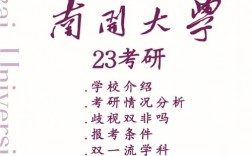 南開大學
23考研
.学校介绍
.考研情况分析
.歧视双非吗
.报考条件
.双一流学科
ai Universi